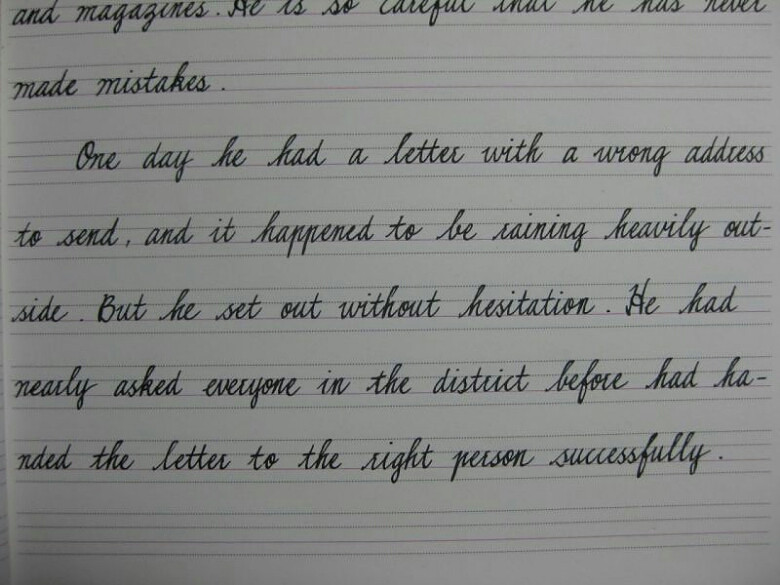 and magazines. He is so careful that he has never
made mistakes.
One day he had a letter with a wrong address
to send, and it happened to be raining heavily out-
side. But he set out without hesitation. He had
nearly asked everyone in the district before had ha-
nded the letter to the right person successfully.